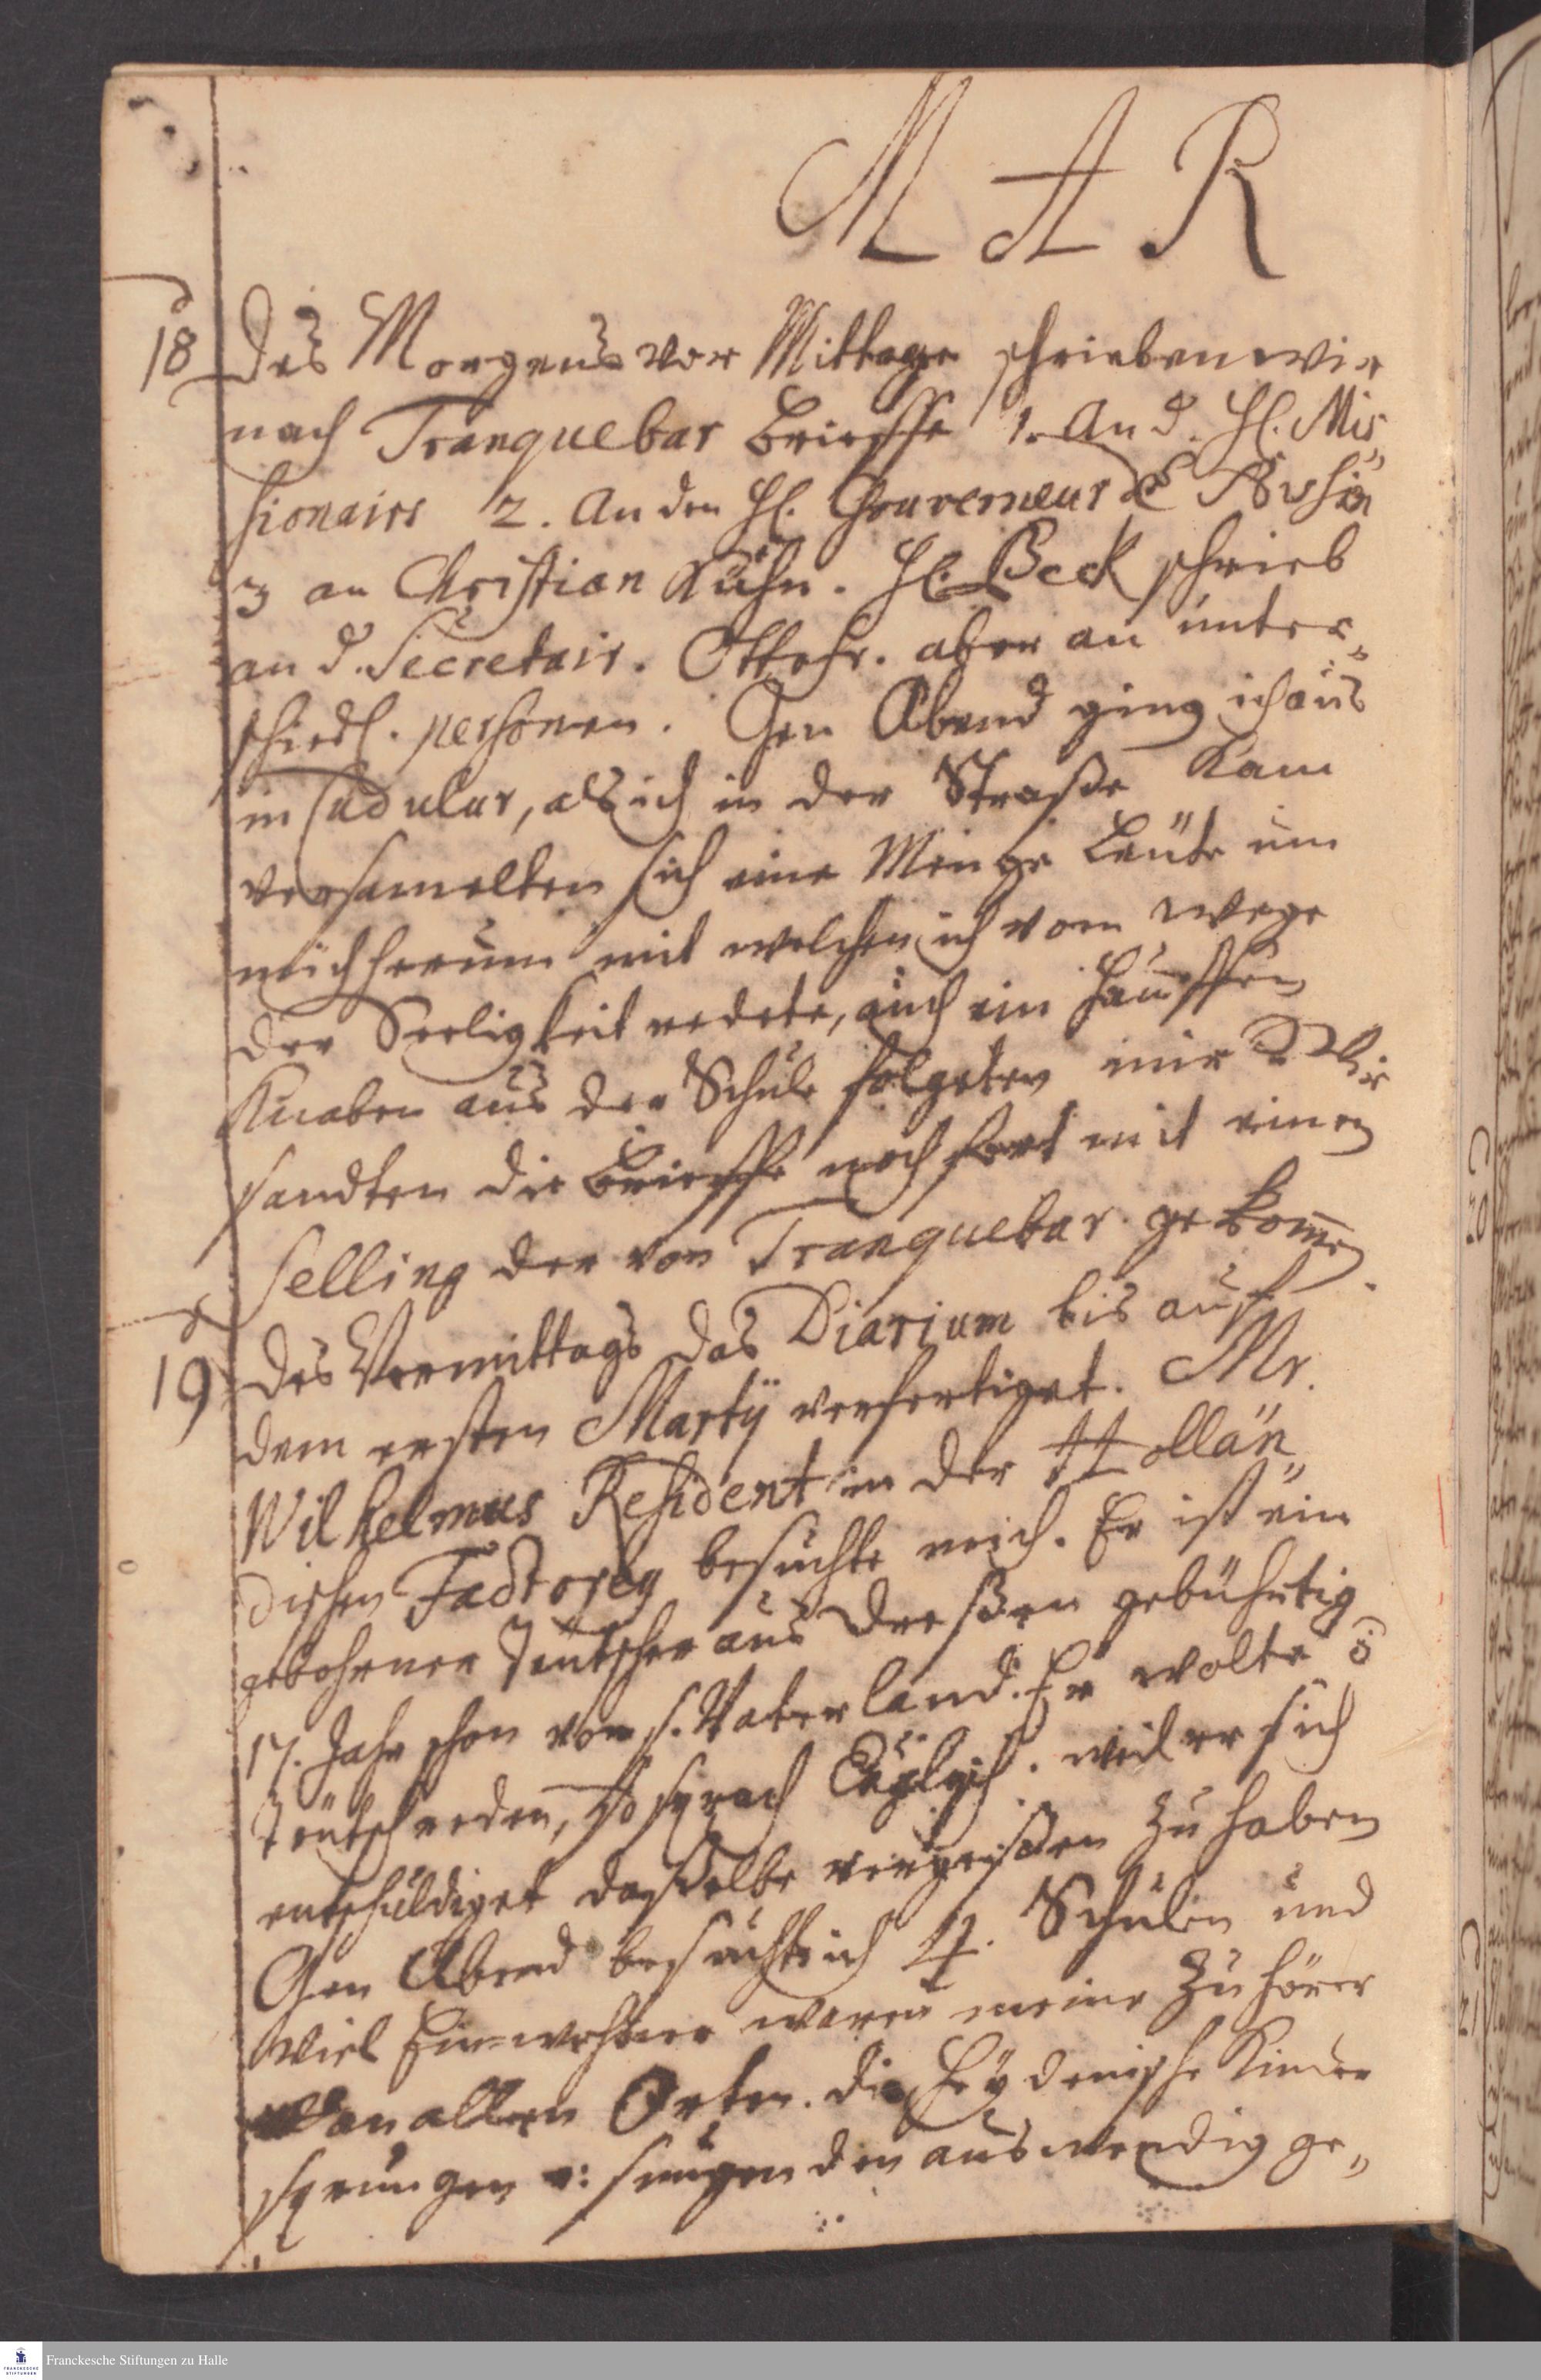 M A R
18 Des Morgens vor Mittage schrieben wir
nach Tranquebar Brieffe 1. An d. H. Mis„
sionairs 2. An den H. Gouverneur
3 an Christian Kühn. H. Beck schrieb
an d. Secretair. aber an unter„
schiedl. personen. Gen Abend ging ich aus
in Cudulur, als ich in der Straße Kam
versamelten sich eine Menge Leute um
mich herum mit welchen ich vom wege
der Seeligkeit redete, auch ein hauffen
Knaben aus der Schule folgeten mir Wir
sandten die Brieffe noch fort mit einen
Selling der von Tranquebar gekom̅en.
19 Des Vormittags das Diarium bis auf
dem ersten Martÿ verfertiget. Mr.
Wilhelmus Resident in der Hollän„
dischen Factorey besuchte mich. Er ist ein
gebohrner Teutscher aus Dreßen gebührtig
17. Jahr schon von s. Vaterland. Er wolte
Teutsch reden, sprach weil er sich
entschuldiget dasselbe vergeßen zu haben
Gen Abend besuchte ich 4. Schulen und
viel Einwohner waren meine Zuhörer
an allen Orten. die Heÿdenische Kinder
sprungen u: sungen den auswendig ge„
Franckesche Stiftungen zu Halle